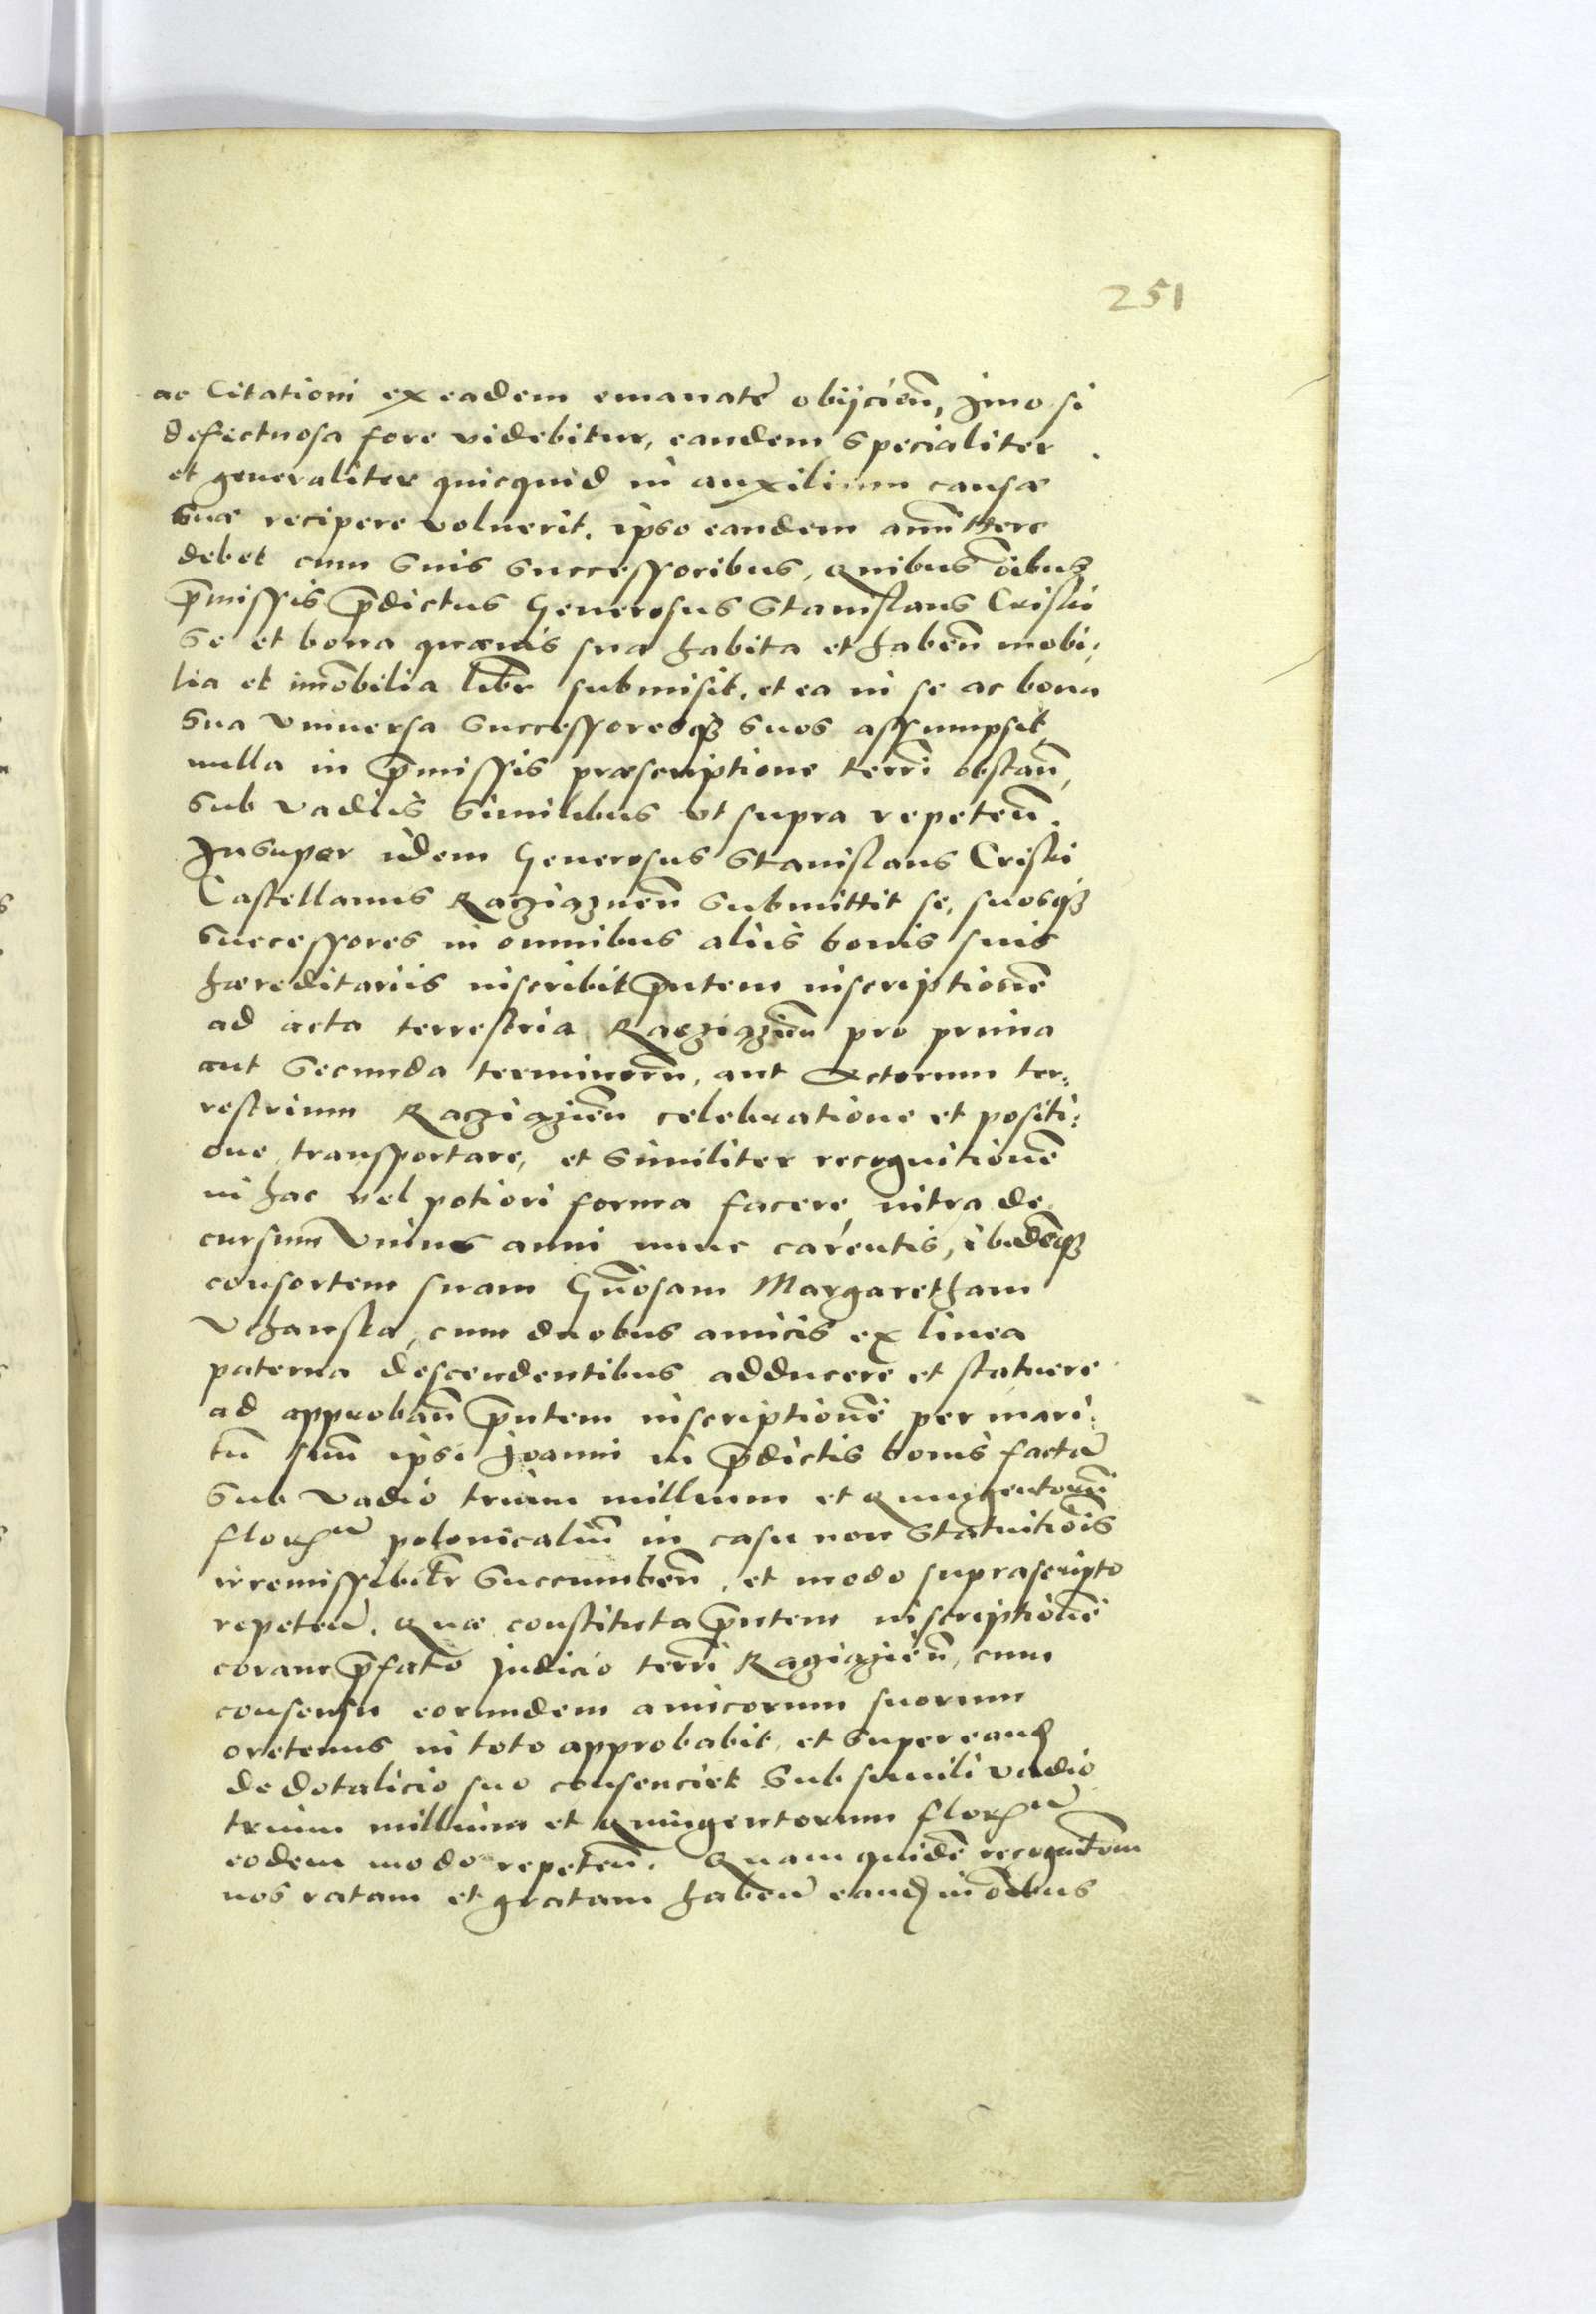 251
ac Citationi ex eadem emanatẽ obijcieñ, Imo si
defectuosa fore videbitur, eandem specialiter
et generaliter quicquid in auxilium causæ
suæ recipere voluerit. ipso eandem amittere
debet cum suis successoribus, Quibus õibus
p̃missis p̃dictus Generosus Stanislaus Criski
se et bona quævis sua habita et habeñ mobi:
lia et im̃obilia libr̃e submisit. et ea in se ac bona
sua Vniuersa successoresq3 suos assumpsit,
nulla in p̃missis præscriptione terr̃i obstañ,
sub vadiis similibus vt supra repeteñ.
Insuper idem Generosus Stanislaus Criski
Castellanus Raczÿazneñ submittit se, suosq3
successores in omnibus aliis bonis suis
hæreditariis inscribit p̃ntem inscriptionẽ
ad acta terrestria Raczyązieñ pro prima
aut secunda terminorũ, aut Actorum ter:
restrium Raczyązieñ celebratione et positi:
one transportare, et similiter recognitionẽ
in hac vel potiori forma facere, intra de
cursum Vnius anni nunc carentis, ibidẽq3
consortem suam Gñosam Margaretham
Vchanska, cum duobus amicis ex linea
paterna descendentibus adducere et statuere
ad approbañ p̃ntem inscriptionẽ per mari:
tũ suũ ipsi Joanni in p̃dictis bonis factã
sub vadio trium millium et Quingentorũ
flor̃ polonicaliũ in casu non statuitiõis
irremissibilr̃ succumbeñ, et modo suprascripto
repeteñ. Quæ constituta p̃ntem inscriptionẽ
coram p̃fato Judicio terr̃i Raczyązieñ, cum
consensu eorundem amicorum suorum
oretenus in toto approbabit, et super eand̃
de dotalicio suo consenciet sub simili vadio
trium millium et Quingentorum flor̃
eodem modo repeteñ. Quam quidẽ recognit̃om
nos ratam et gratam habeñ eand̃ in õibus